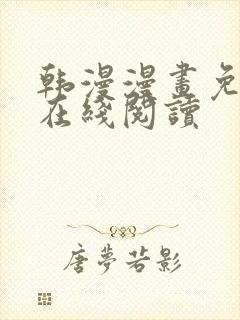 韩漫漫畫免
在綫閱讀
唐夢若影